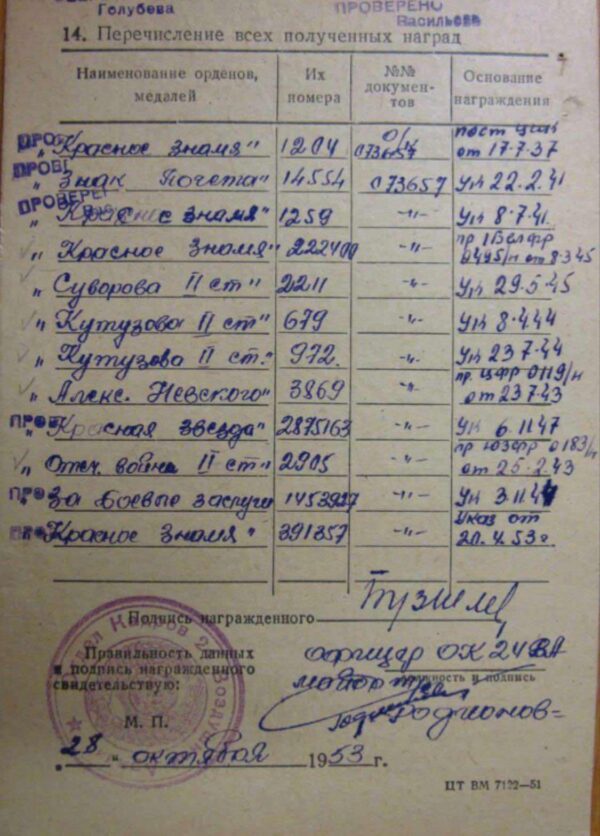 Голубева
ПРОВЕРЕНО
Васильева
14. Перечисление всех полученных наград
Наименование орденов, медалей
Их номера
№№ документов
Основание награждения
ПРОВ
„Красное Знамя" 1204 073657 пост ЦИК от 17.7.37
ПРОВЕ
„Знак Почета" 14554 073657 Ук 22.2.41
ПРОВЕРЕН
„Красное Знамя" 1259 -"- Ук 8.7.41
„Красное Знамя" 222400 -"- пр 1 Белфр 0495/н от 8.3.45
„Суворова II ст" 2211 -"- Ук 29.5.45
„Кутузова II ст" 679 -"- Ук 8.4.44
„Кутузова II ст." 972. -"- Ук 23 7.44
„Алекс. Невского" 3869 -"- пр. ЦФР 0119/н от 23.7.43
ПРОВ
„Красная звезда" 2875163 -"- Ук 6.11.47
„Отч. война II ст" 2905 -"- пр ЮЗФР 0183/н от 25.2.43
ПРОВ
„За боевые заслуги 1453927 -"- Ук 3.11.44
ПРОВ
„Красное Знамя" 391357 -"- Указ от 20.4.53г
Подпись награжденного
Правильность данных
и подпись награжденного
свидетельствую:
офицер ОК 24 ВА
должность и подпись
майор
Родионов
М. П.
„28" октября 1953 г.
ЦТ ВМ 7122—51